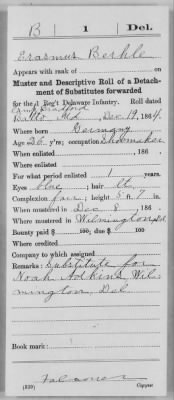 B 1 Del.
Erasmus Berkle
Appears with rank of
Muster and Descriptive Roll of a Detach-
ment of Substitutes forwarded
for the 1 Reg't Delaware Infantry. Roll dated
Camp Bradford
Balto Md, Dec 19, 1864.
Where born Germany
Age 26 y'rs; occupation Shoemaker
When enlisted , 186 .
Where enlisted
For what period enlisted 1 years.
Eyes blue ; hair lt.
Complexion fair ; height 5 ft. 7 in.
When mustered in Dec 8 , 186 .
Where mustered in Wilmington Del
Bounty paid $ 100; due $ 100
Where credited
Company to which assigned
Remarks: Substitute for
Noah Adkins Wil-
mington, Del
Book mark:
Falconer
(339) Copyist.